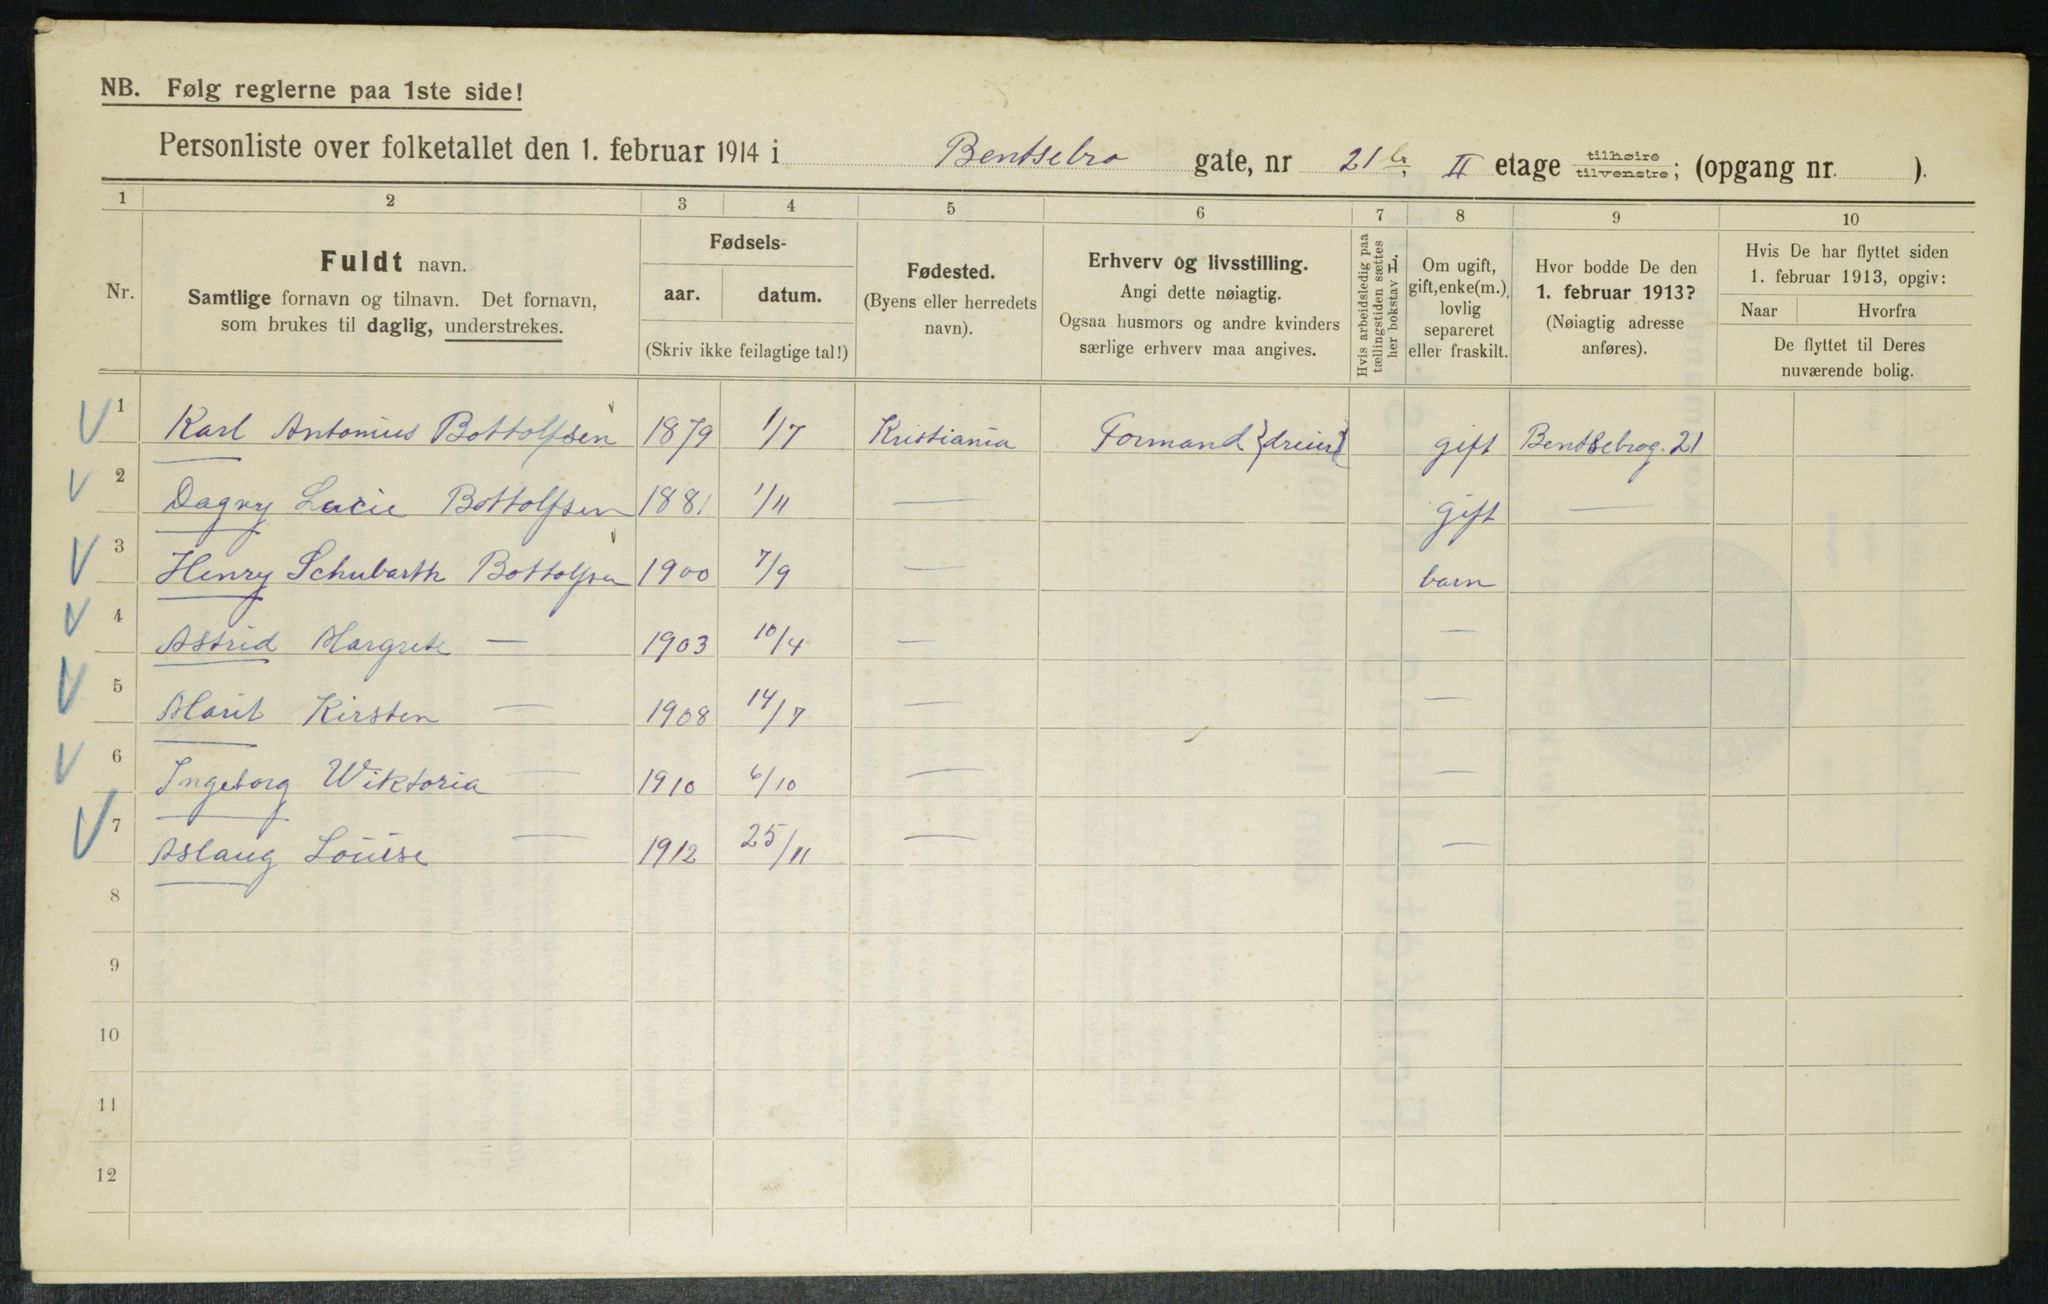 NB. Følg reglerne paa 1ste side!
Personliste over folketallet den 1. februar 1914 i Bentsebro gate, nr 21 b, II etage tilhøire/tilvenstre; (opgang nr. ).
1 2 3 4 5 6 7 8 9 10
Nr.
Fuldt navn.
Samtlige fornavn og tilnavn. Det fornavn,
som brukes til daglig, understrekes.
Fødsels-
aar. datum.
(Skriv ikke feilagtige tal!)
Fødested.
(Byens eller herredets
navn).
Erhverv og livsstilling.
Angi dette nøiagtig.
Ogsaa husmors og andre kvinders
særlige erhverv maa angives.
Hvis arbeidsledig paa
tællingstiden sættes
her bokstav L.
Om ugift,
gift, enke(m.),
lovlig
separeret
eller fraskilt.
Hvor bodde De den
1. februar 1913?
(Nøiagtig adresse
anføres).
Hvis De har flyttet siden
1. februar 1913, opgiv:
Naar Hvorfra
De flyttet til Deres
nuværende bolig.
1 Karl Antonius Bottolfsen 1879 1/7 Kristiania Formand {dreier} gift Bentsebrog. 21
2 Dagny Lucie Bottolfsen 1881 1/11 — gift —
3 Henry Schubarth Bottolfsen 1900 7/9 — barn
4 Astrid Margrete — 1903 10/4 — —
5 Marit Kirsten — 1908 14/7 — —
6 Ingeborg Wiktoria — 1910 6/10 — —
7 Aslaug Louise — 1912 25/11 — —
8
9
10
11
12